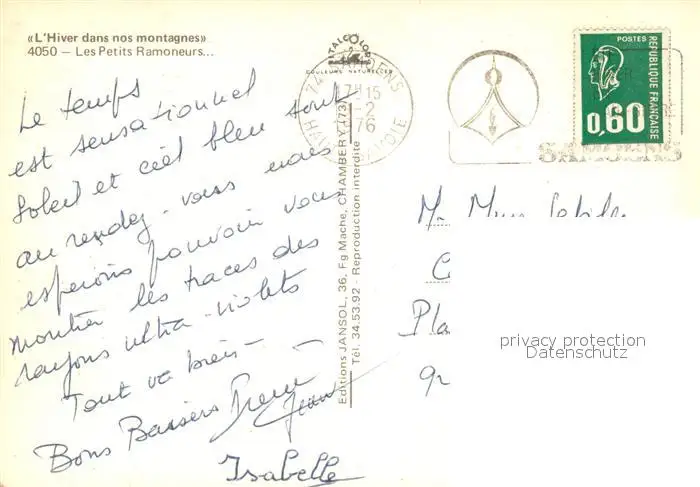 «L'Hiver dans nos montagnes»
4050 — Les Petits Ramoneurs...
COULEURS NATURELLES
74 SAMOENS
17H15
-2
76
HAUTE SAVOIE
POSTES
RÉPUBLIQUE FRANÇAISE
0,60
SAMOENS
Le temps
est sensationnel
Soleil et ciel bleu sont
au rendez-vous nous
esperons pouvoir vous
montrer les traces des
rayons ultra-violets
Tout va bien
Bons Baisers
Isabelle
Editions JANSOL, 36, Fg Mache, CHAMBERY (73)
Tél. 34.53.92 - Reproduction interdite
Mr Mme
Pla
92
privacy protection
Datenschutz